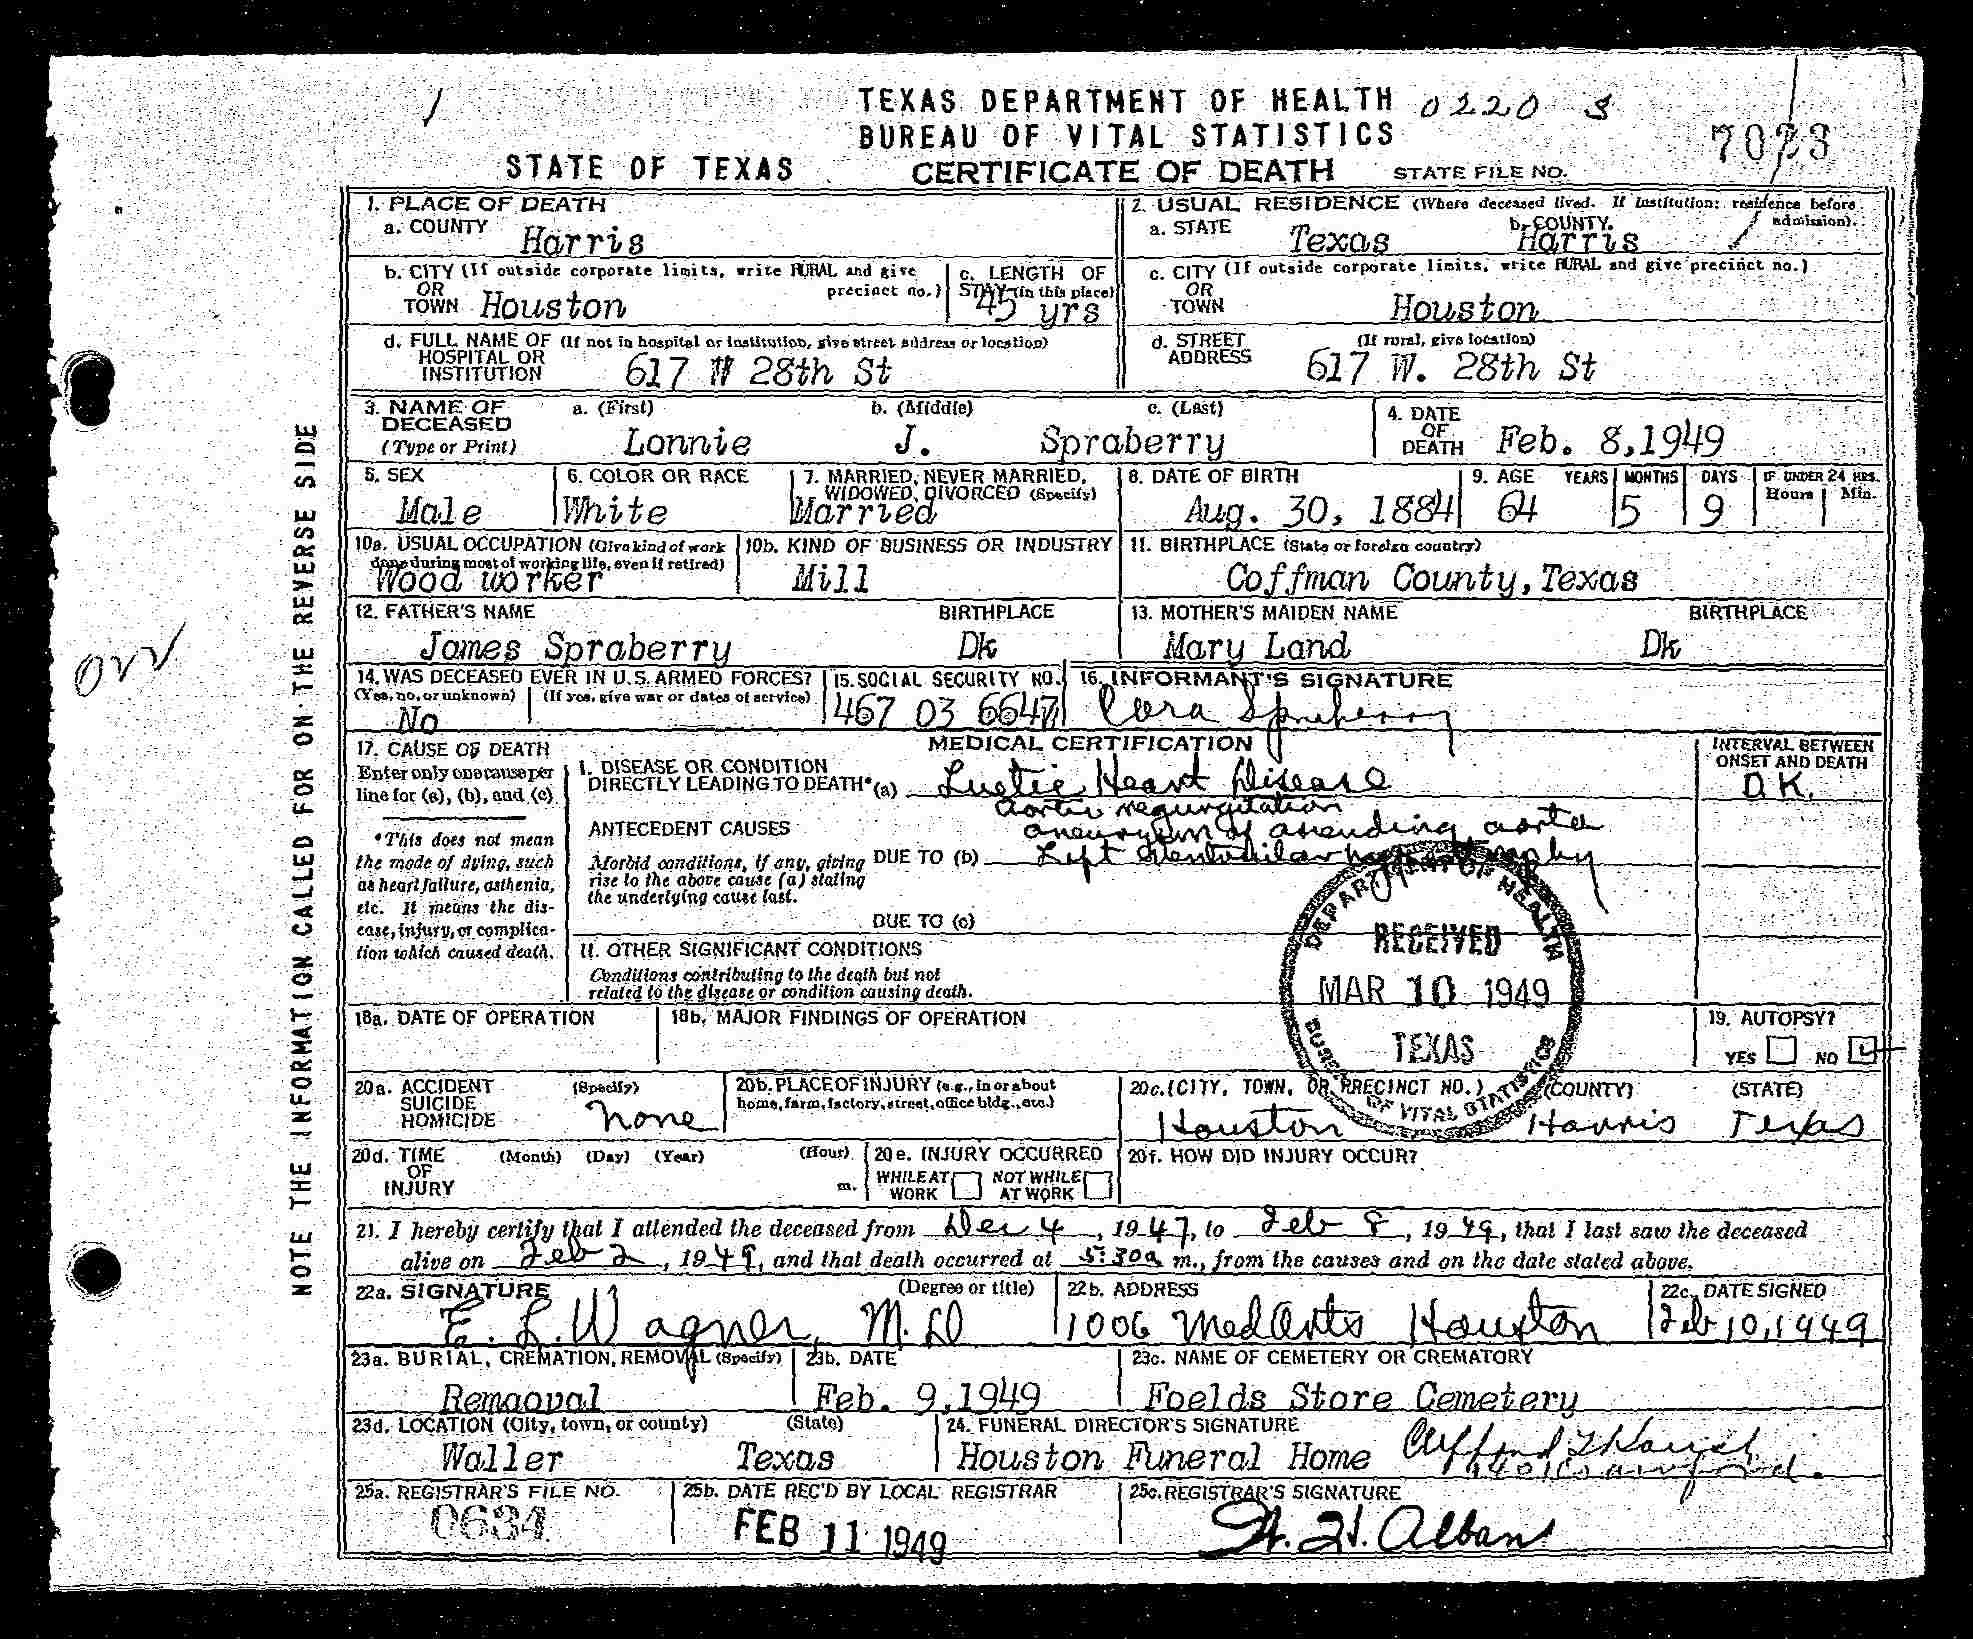 TEXAS DEPARTMENT OF HEALTH 0220 3
BUREAU OF VITAL STATISTICS
STATE OF TEXAS CERTIFICATE OF DEATH STATE FILE NO. 7023
NOTE THE INFORMATION CALLED FOR ON THE REVERSE SIDE
1. PLACE OF DEATH
a. COUNTY Harris
2. USUAL RESIDENCE (Where deceased lived. If institution: residence before admission).
a. STATE Texas b. COUNTY. Harris
b. CITY (If outside corporate limits, write RURAL and give precinct no.)
OR
TOWN Houston
c. LENGTH OF
STAY (in this place)
45 yrs
c. CITY (If outside corporate limits, write RURAL and give precinct no.)
OR
TOWN Houston
d. FULL NAME OF (If not in hospital or institution, give street address or location)
HOSPITAL OR
INSTITUTION 617 W 28th St
d. STREET (If rural, give location)
ADDRESS 617 W. 28th St
3. NAME OF DECEASED a. (First) b. (Middle) c. (Last)
(Type or Print) Lonnie J. Spraberry
4. DATE OF DEATH Feb. 8,1949
5. SEX
Male
6. COLOR OR RACE
White
7. MARRIED, NEVER MARRIED,
WIDOWED, DIVORCED (Specify)
Married
8. DATE OF BIRTH
Aug. 30, 1884
9. AGE YEARS MONTHS DAYS IF UNDER 24 HRS.
Hours Min.
64 5 9
10a. USUAL OCCUPATION (Give kind of work
done during most of working life, even if retired)
Wood worker
10b. KIND OF BUSINESS OR INDUSTRY
Mill
11. BIRTHPLACE (State or foreign country)
Coffman County, Texas
12. FATHER'S NAME BIRTHPLACE
James Spraberry Dk
13. MOTHER'S MAIDEN NAME BIRTHPLACE
Mary Land Dk
14. WAS DECEASED EVER IN U.S. ARMED FORCES?
(Yes, no, or unknown) (If yes, give war or dates of service)
No
15. SOCIAL SECURITY NO.
467 03 6647
16. INFORMANT'S SIGNATURE
Cora Spraberry
17. CAUSE OF DEATH
Enter only one cause per
line for (a), (b), and (c)
*This does not mean
the mode of dying, such
as heart failure, asthenia,
etc. It means the dis-
ease, injury, or complica-
tion which caused death.
MEDICAL CERTIFICATION
INTERVAL BETWEEN
ONSET AND DEATH
D.K.
I. DISEASE OR CONDITION
DIRECTLY LEADING TO DEATH* (a) Luetic Heart Disease
Aortic regurgitation
ANTECEDENT CAUSES aneurysm of ascending aorta
Morbid conditions, if any, giving
rise to the above cause (a) stating
the underlying cause last.
DUE TO (b) Left Ventricular hypertrophy
DUE TO (c)
II. OTHER SIGNIFICANT CONDITIONS
Conditions contributing to the death but not
related to the disease or condition causing death.
DEPARTMENT OF HEALTH
RECEIVED
MAR 10 1949
TEXAS
BUREAU OF VITAL STATISTICS
18a. DATE OF OPERATION
18b. MAJOR FINDINGS OF OPERATION
19. AUTOPSY?
YES NO
20a. ACCIDENT (Specify)
SUICIDE
HOMICIDE none
20b. PLACE OF INJURY (e.g., in or about
home, farm, factory, street, office bldg., etc.)
20c. (CITY, TOWN, OR PRECINCT NO.) (COUNTY) (STATE)
Houston Harris Texas
20d. TIME (Month) (Day) (Year) (Hour)
OF
INJURY m.
20e. INJURY OCCURRED
WHILE AT WORK NOT WHILE AT WORK
20f. HOW DID INJURY OCCUR?
21. I hereby certify that I attended the deceased from Dec 4, 1947, to Feb 8, 1949, that I last saw the deceased
alive on Feb 2, 1949, and that death occurred at 5:30a m., from the causes and on the date stated above.
22a. SIGNATURE (Degree or title)
E. L. Wagner, M.D
22b. ADDRESS
1006 Med Arts Houston
22c. DATE SIGNED
Feb 10, 1949
23a. BURIAL, CREMATION, REMOVAL (Specify)
Remaoval
23b. DATE
Feb. 9,1949
23c. NAME OF CEMETERY OR CREMATORY
Foelds Store Cemetery
23d. LOCATION (City, town, or county) (State)
Waller Texas
24. FUNERAL DIRECTOR'S SIGNATURE
Houston Funeral Home
25a. REGISTRAR'S FILE NO.
0634
25b. DATE REC'D BY LOCAL REGISTRAR
FEB 11 1949
25c. REGISTRAR'S SIGNATURE